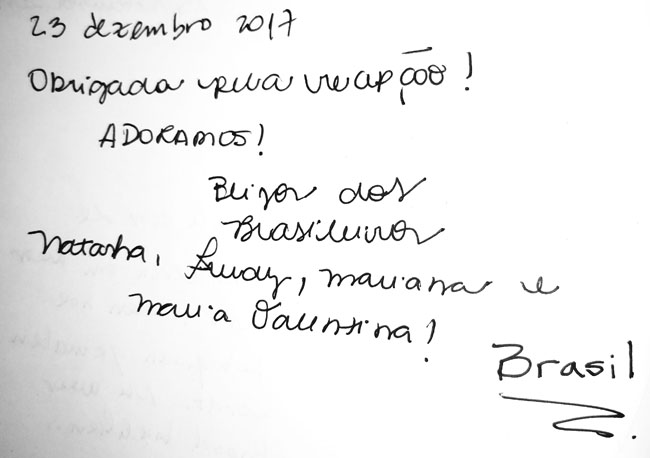 23 dezembro 2017
Obrigada pela recepção!
ADORAMOS!
Beijos dos
Brasileiros
Natasha, , Mariana e
Maria Valentina!
Brasil